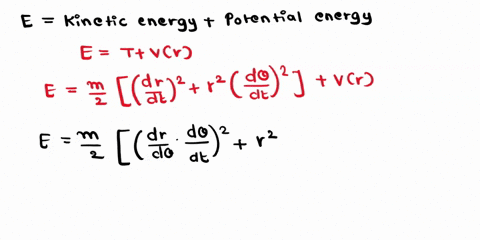 E = Kinetic energy + Potential energy
E = T+ V(r)
E = m/2 [(dr/dt)² + r² (dθ/dt)²] + V(r)
E = m/2 [(dr/dθ · dθ/dt)² + r²